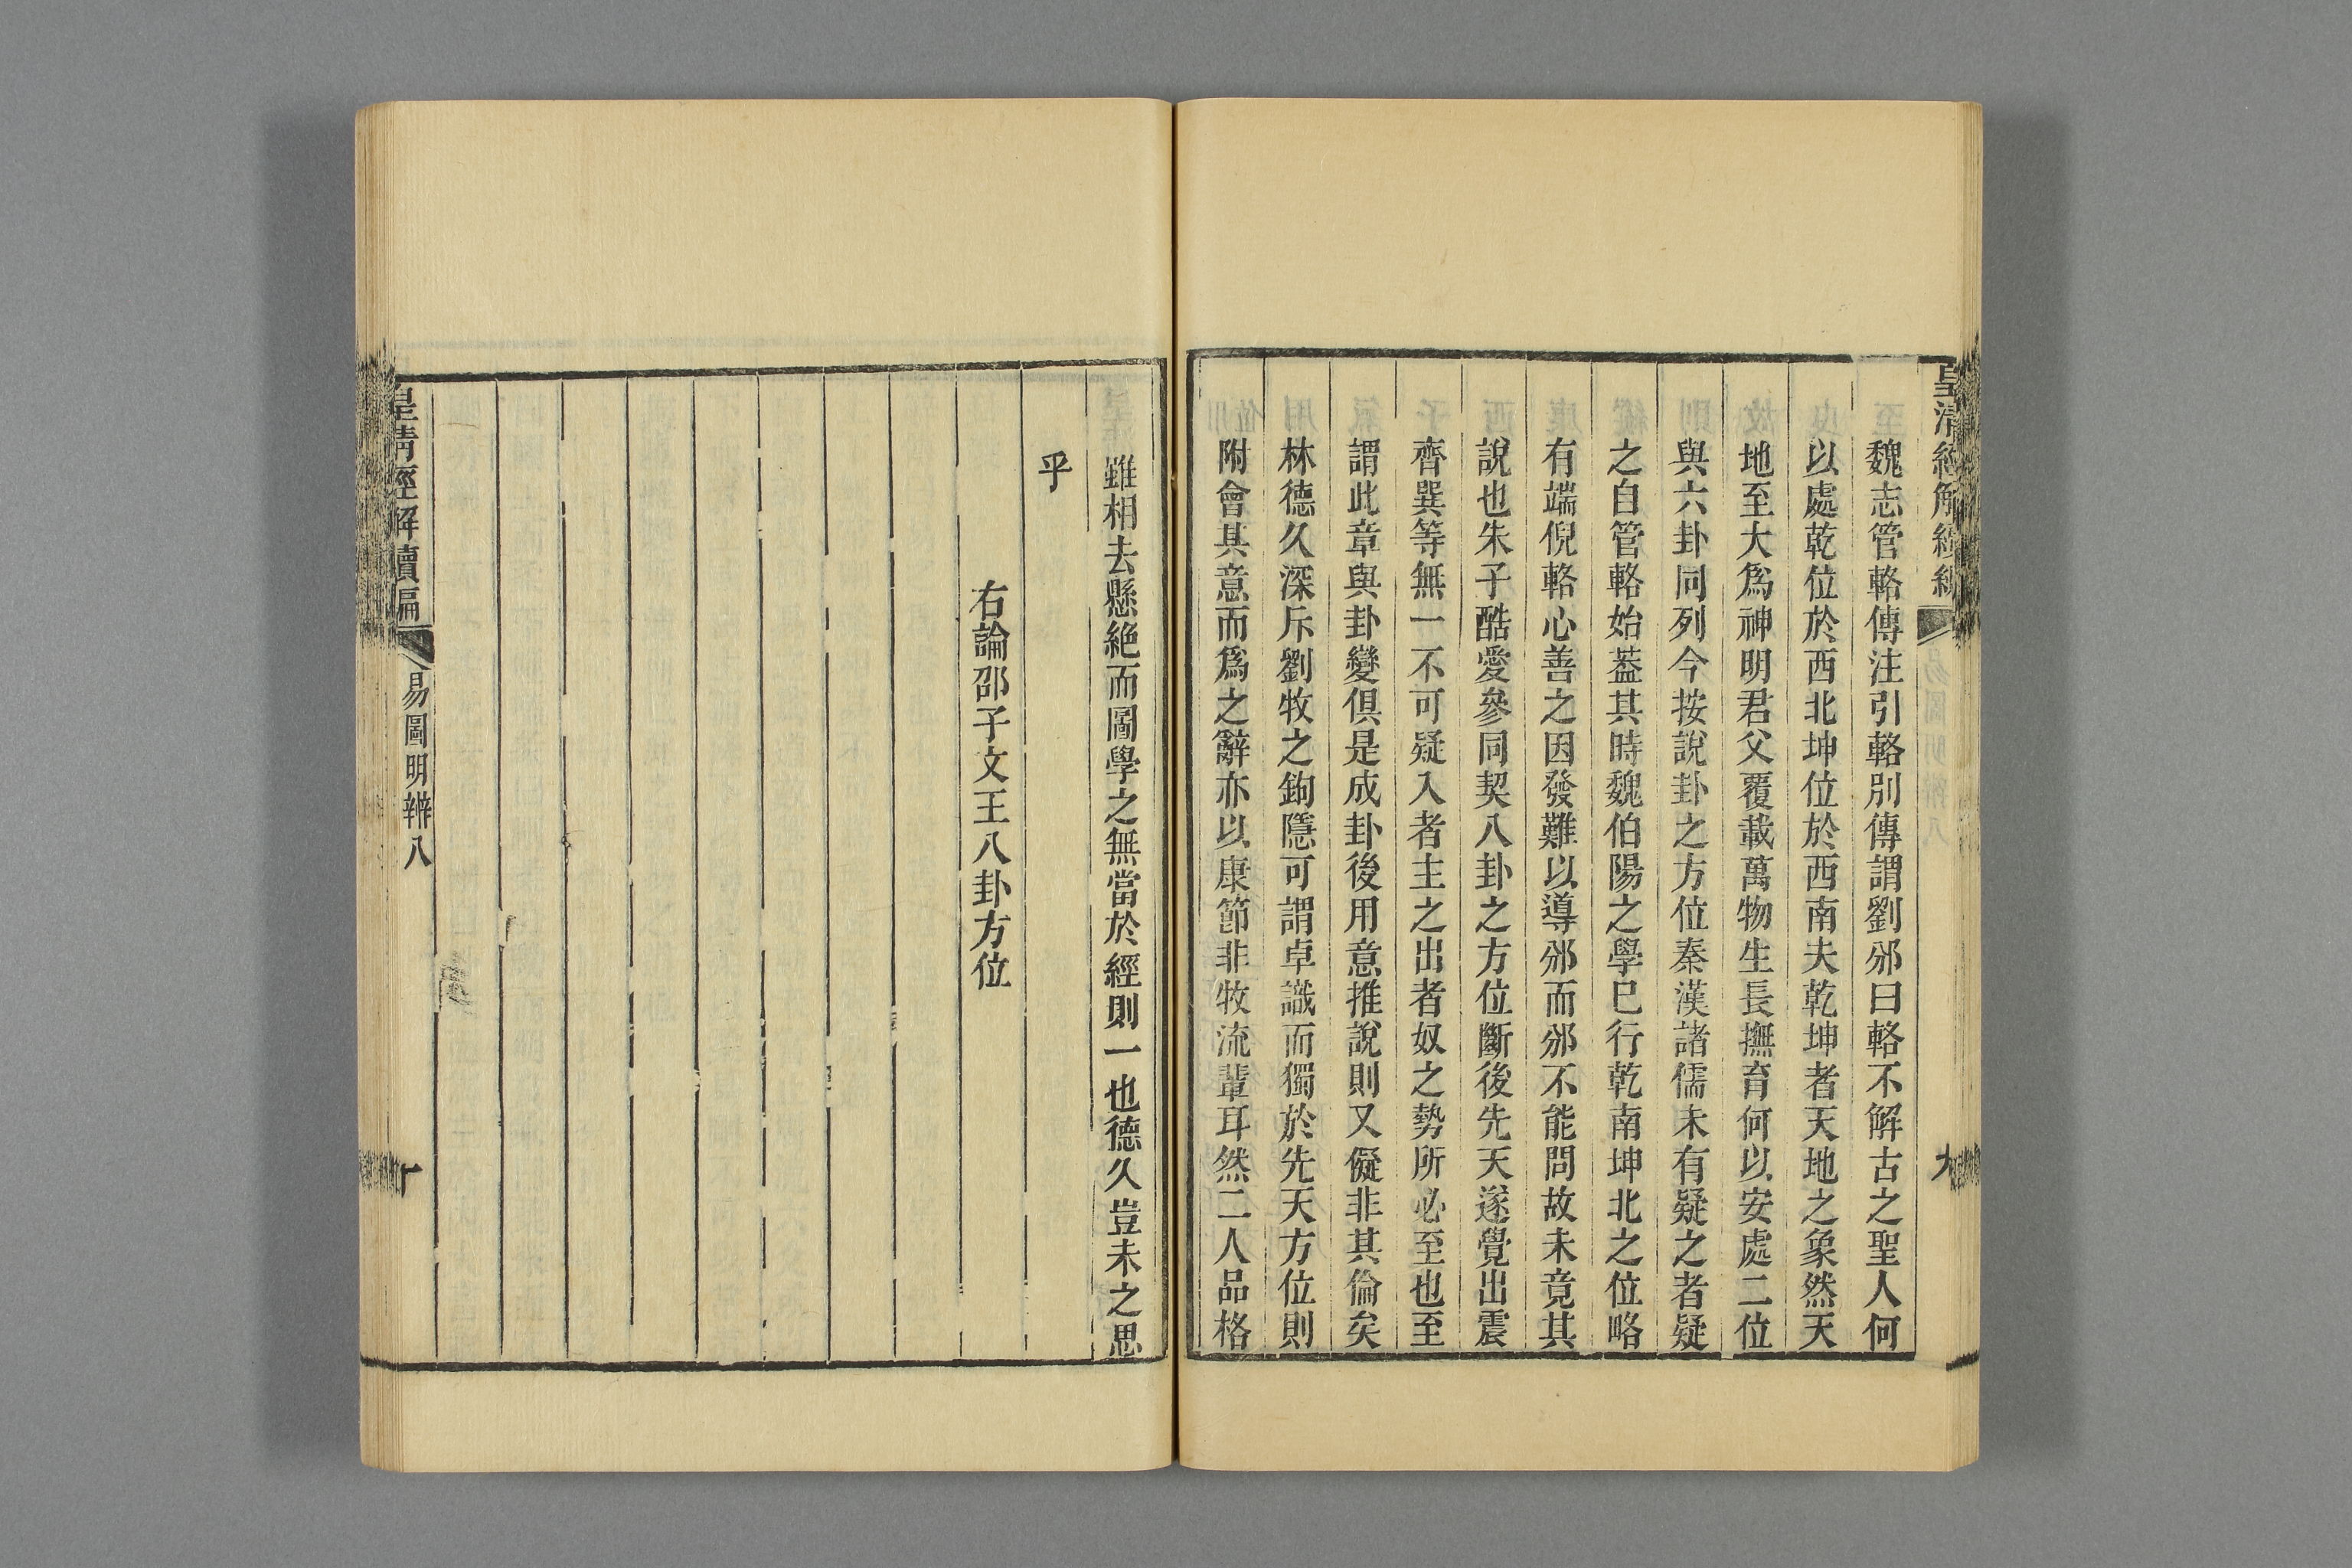 皇清經解續編
魏志管輅傳注引輅別傳謂劉邠曰輅不解古之聖人何
以處乾位於西北坤位於西南夫乾坤者天地之象然天
地至大爲神明君父覆載萬物生長撫育何以安處二位
與六卦同列今按說卦之方位秦漢諸儒未有疑之者疑
之自管輅始葢其時魏伯陽之學已行乾南坤北之位略
有端倪輅心善之因發難以導邠而邠不能問故未竟其
說也朱子酷愛參同契八卦之方位斷後先天遂覺出震
齊巽等無一不可疑入者主之出者奴之勢所必至也至
謂此章與卦變俱是成卦後用意推說則又儗非其倫矣
林德久深斥劉牧之鉤隱可謂卓識而獨於先天方位則
附會其意而爲之辭亦以康節非牧流輩耳然二人品格
雖相去懸絶而圖學之無當於經則一也德久豈未之思
乎
右論邵子文王八卦方位
皇清經解續編
易圖明辨八
十